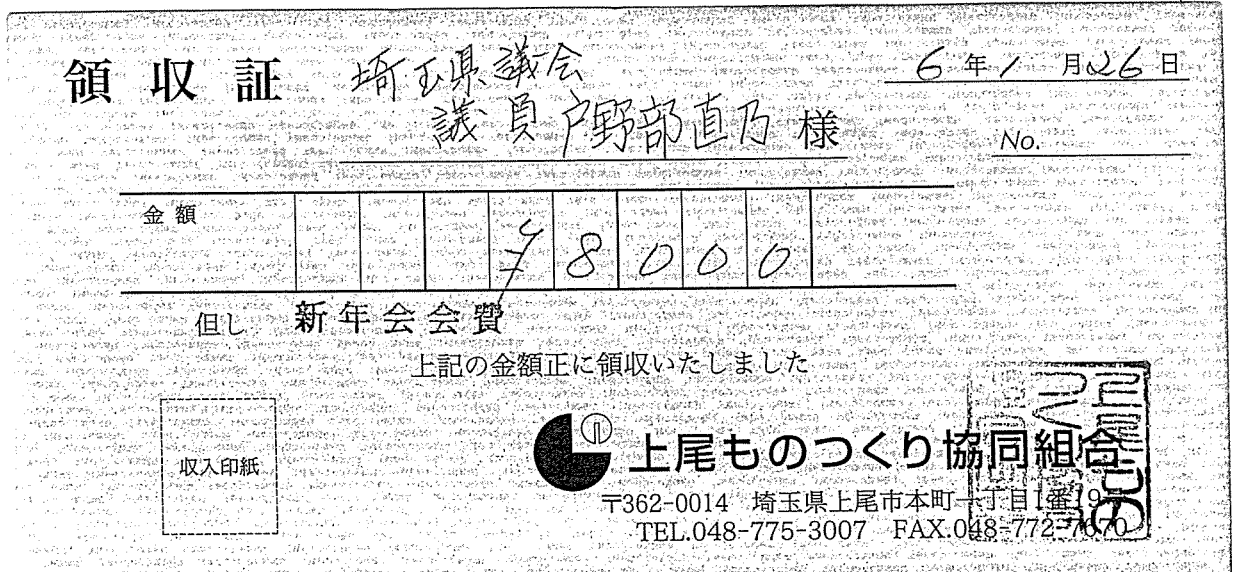 領収証
埼玉県議会
議員 戸野部直乃 様
6年1月26日
No.
金額 ¥8000
但し 新年会会費
上記の金額正に領収いたしました
収入印紙
上尾ものつくり協同組合
〒362-0014 埼玉県上尾市本町一丁目1番19
TEL.048-775-3007 FAX.048-772-7670